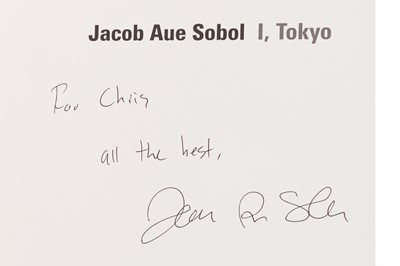 Jacob Aue Sobol I, Tokyo
For Chris
all the best,